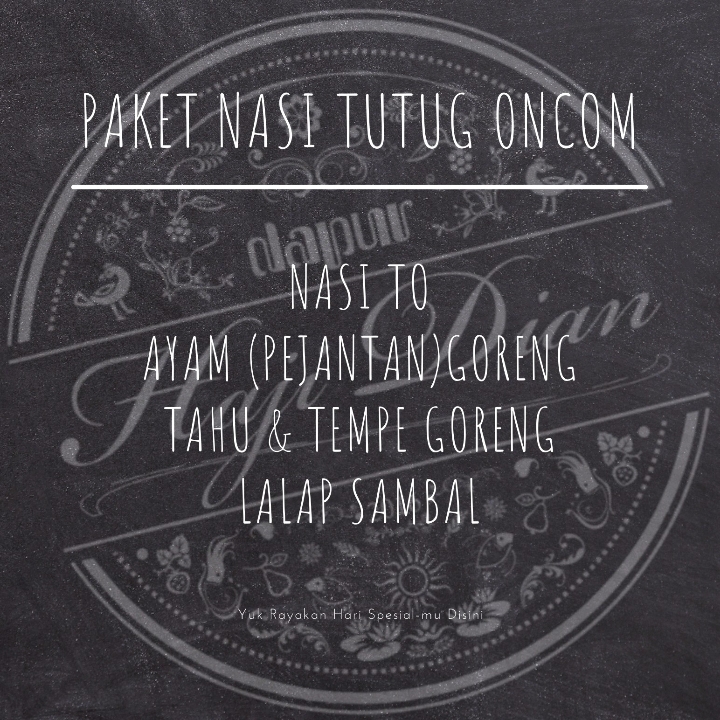 PAKET NASI TUTUG ONCOM
dapur
Haji Dian
NASI TO
AYAM (PEJANTAN)GORENG
TAHU & TEMPE GORENG
LALAP SAMBAL
Yuk Rayakan Hari Spesial-mu Disini